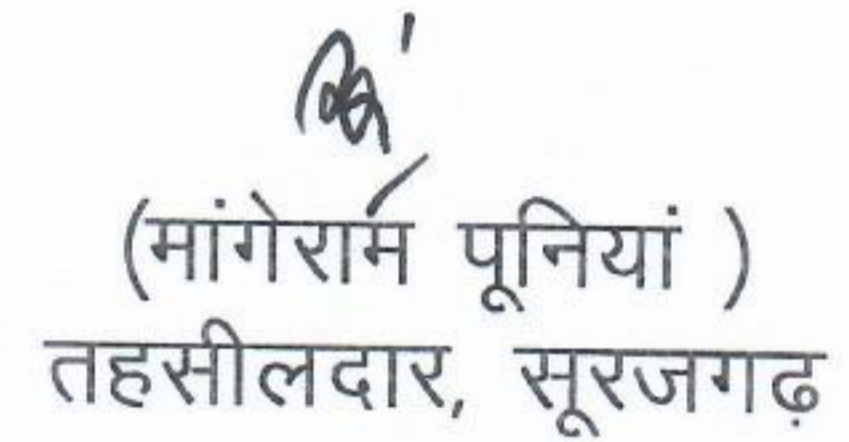 (मांगेराम पूनियां )
तहसीलदार, सूरजगढ़